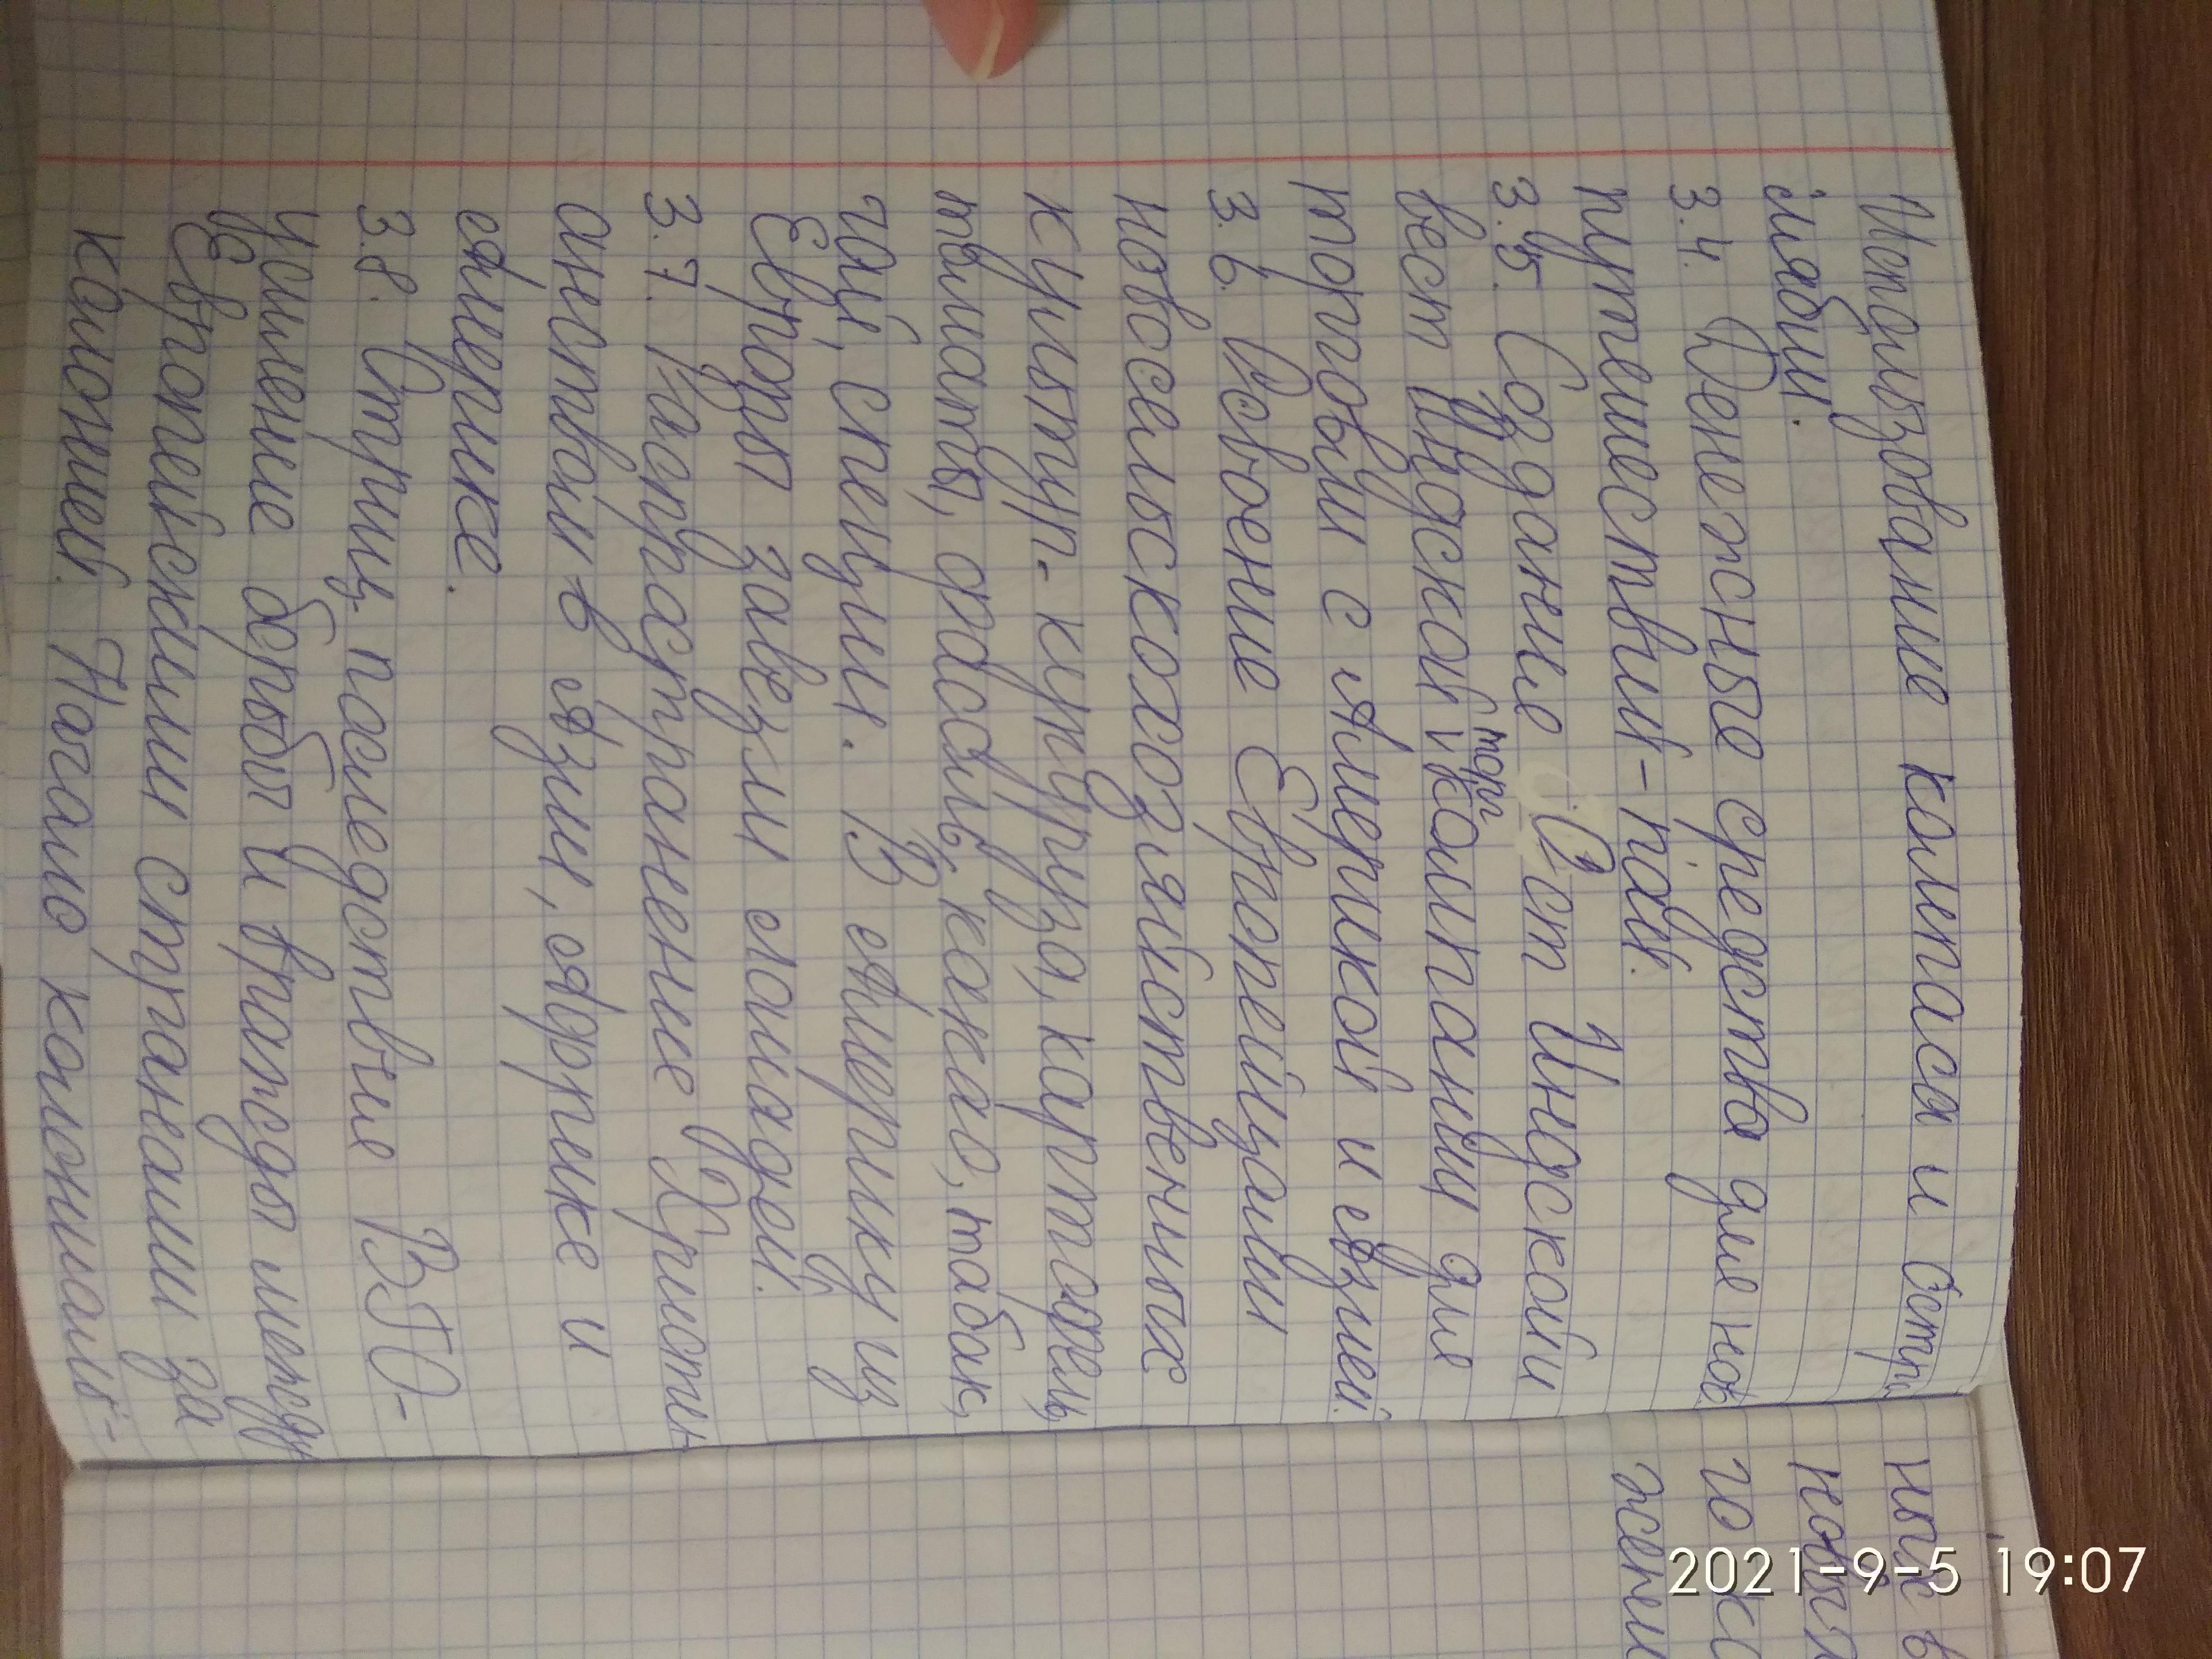 Использование компаса и Остро
лябии.
3.4. Денежные средства для нов
путешествий-прав.
3.5. Создание Ост Индской
вест Индской торг компании для
торговли с Америкой и Азией.
3.6. Освоение Европейцами
новосельскохозяйственных
культур-кукуруза, картофель,
томаты, фасоль, какао, табак,
чай, специи. В Америку из
Европы завезли лошадей.
3.7. Распространение Христи-
анством в Азии, Африке и
Америке.
3.8. Отриц. последствие ВГО-
усиление борьбы и вражды между
Европейскими странами за
колонией. Начало колониаль-
ных в
новых
2021-9-5 19:07